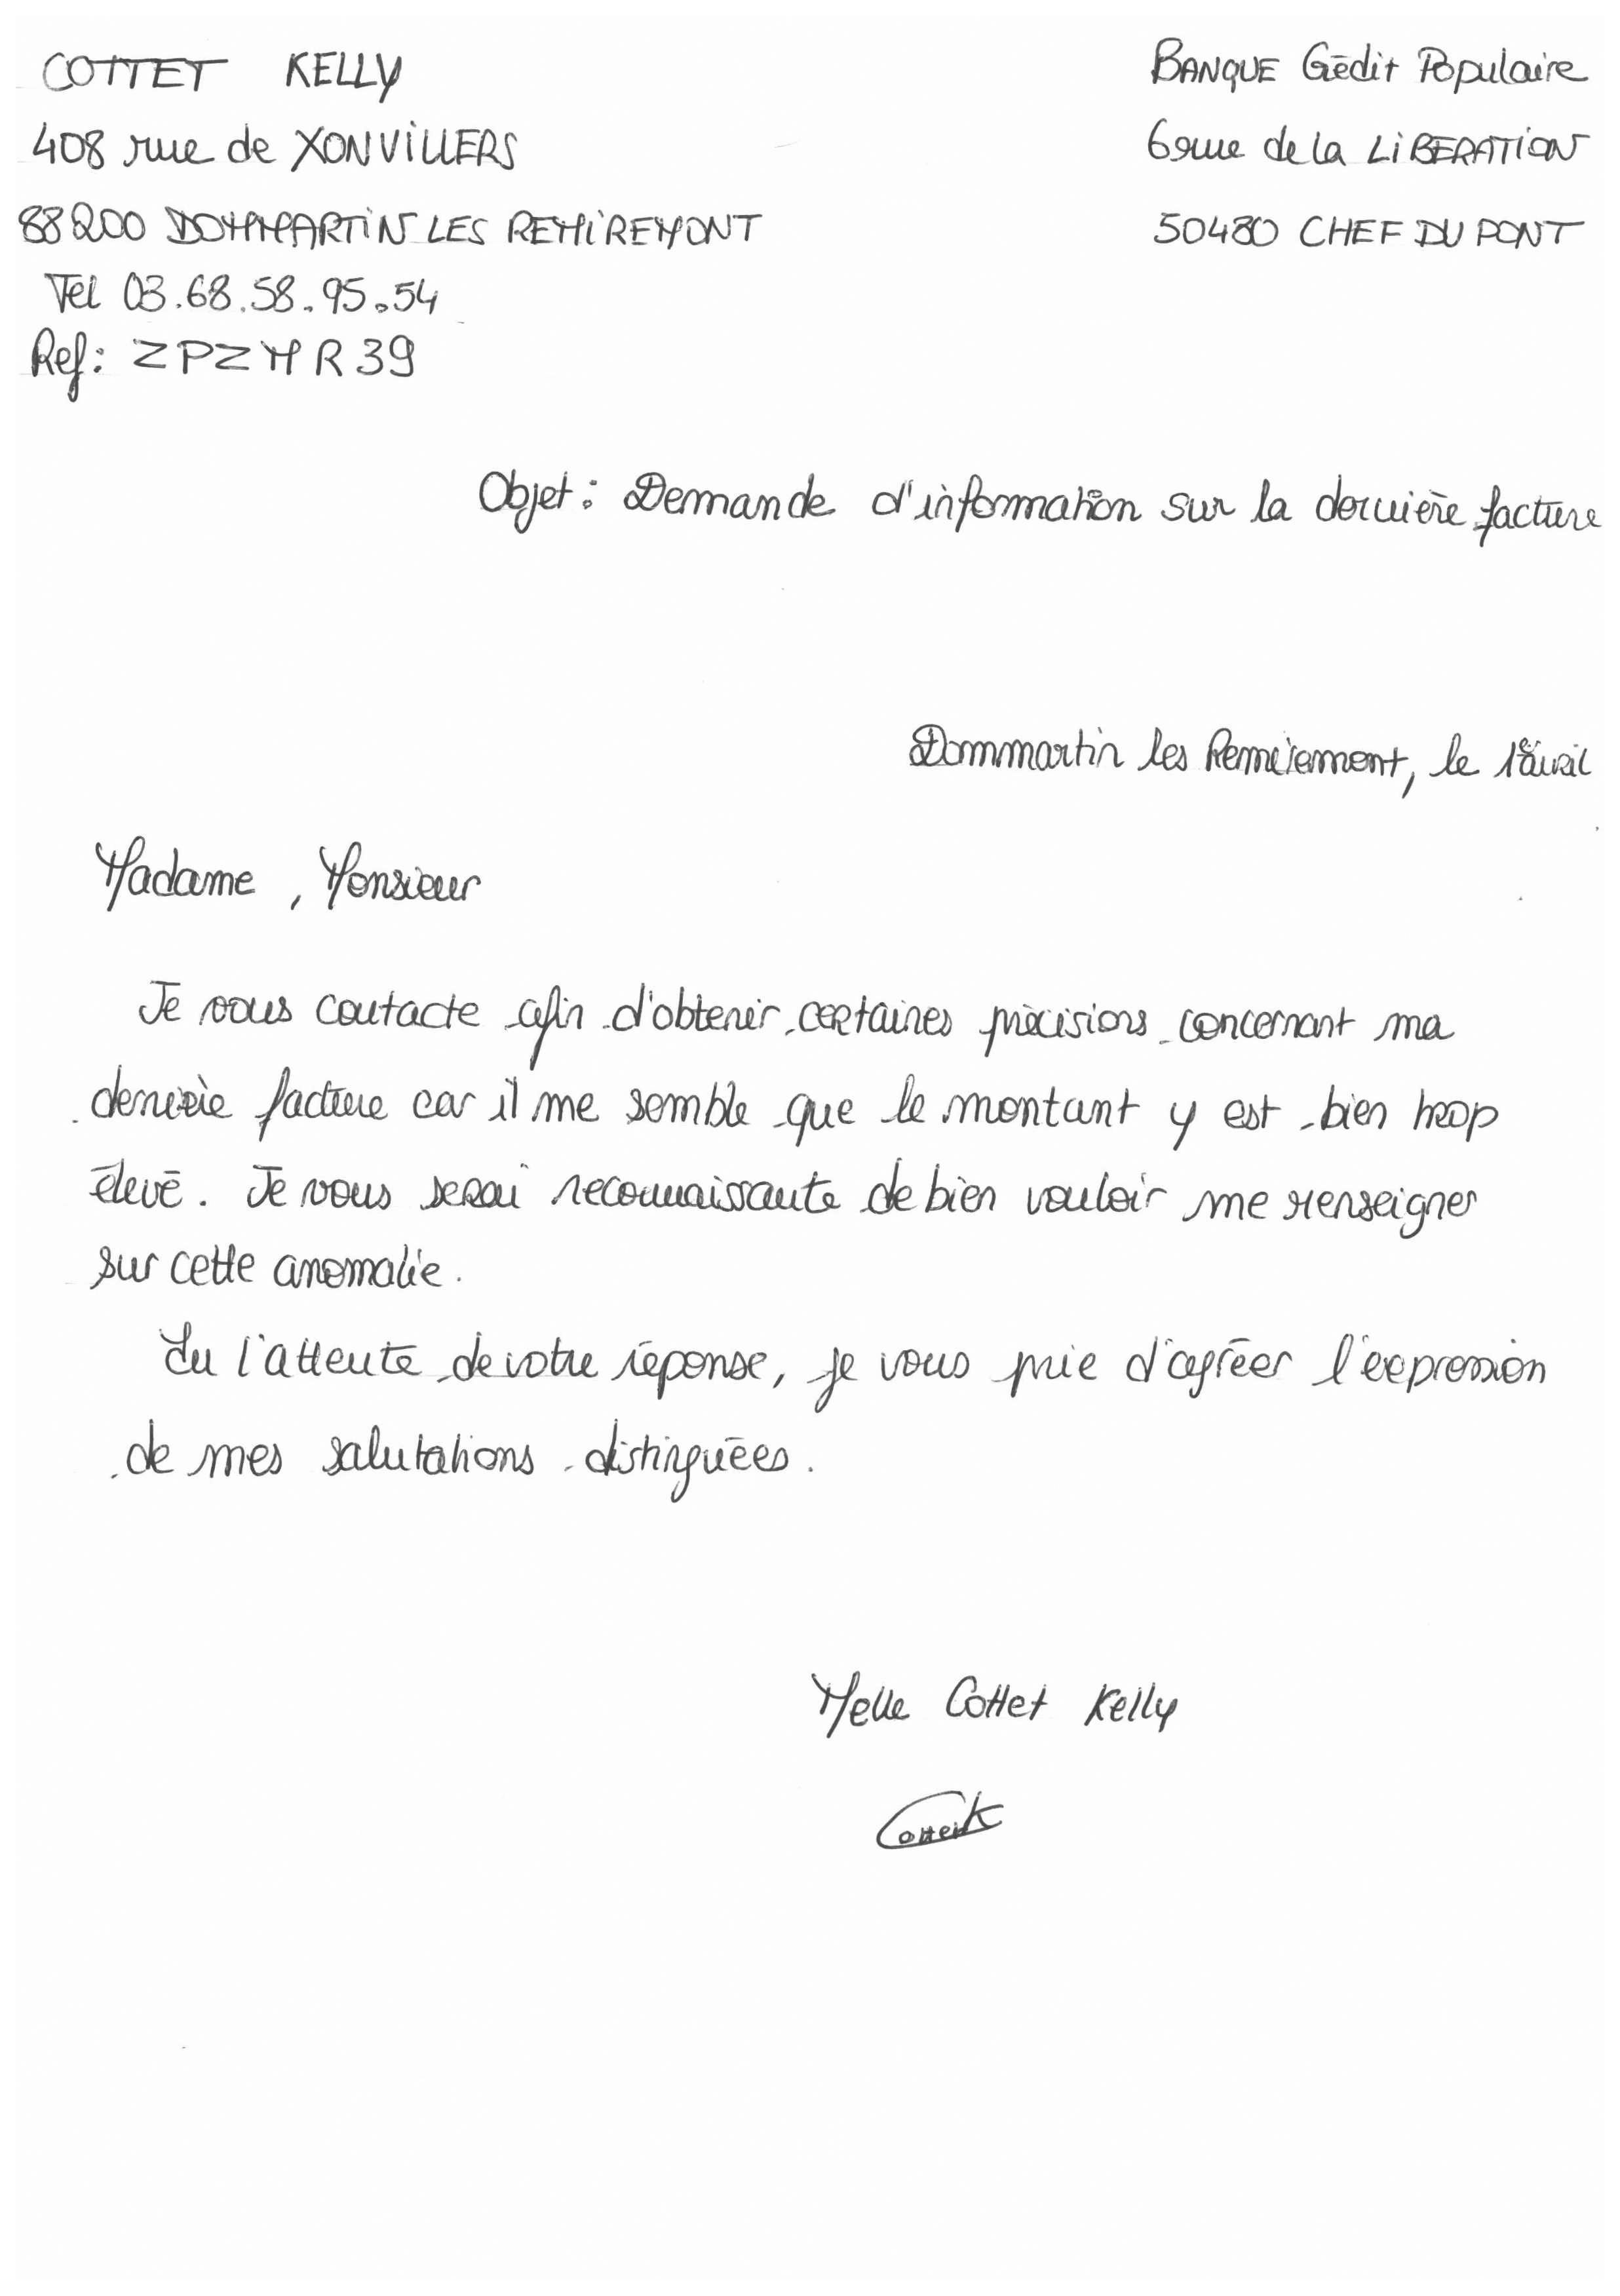 COTTET KELLY
408 rue de XONVILLERS
88200 DOMMARTIN LES REMIREMONT
Tel 03.68.58.95.54
Ref: ZPZMR39
BANQUE Crédit Populaire
6 rue de la LIBERATION
50480 CHEF DU PONT
Objet : Demande d'information sur la dernière facture
Dommartin les Remiremont, le 1er avril
Madame, Monsieur
Je vous contacte afin d'obtenir certaines précisions concernant ma
dernière facture car il me semble que le montant y est bien trop
élevé. Je vous serai reconnaissante de bien vouloir me renseigner
sur cette anomalie.
En l'attente de votre réponse, je vous prie d'agréer l'expression
de mes salutations distinguées.
Melle Cottet Kelly
Cottet K